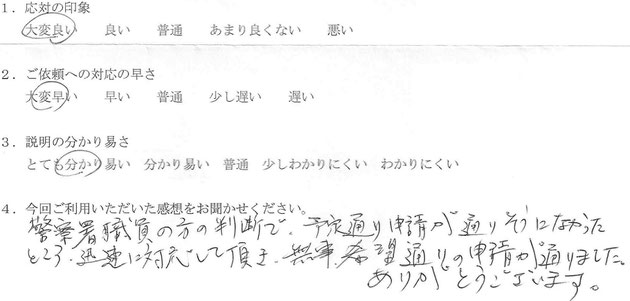 1．応対の印象
大変良い 良い 普通 あまり良くない 悪い
2．ご依頼への対応の早さ
大変早い 早い 普通 少し遅い 遅い
3．説明の分かり易さ
とても分かり易い 分かり易い 普通 少しわかりにくい わかりにくい
4．今回ご利用いただいた感想をお聞かせください。
警察署職員の方の判断で、予定通り申請が通りそうになかった
ところ、迅速に対応して頂き、無事、希望通りの申請が通りました。
ありがとうございます。